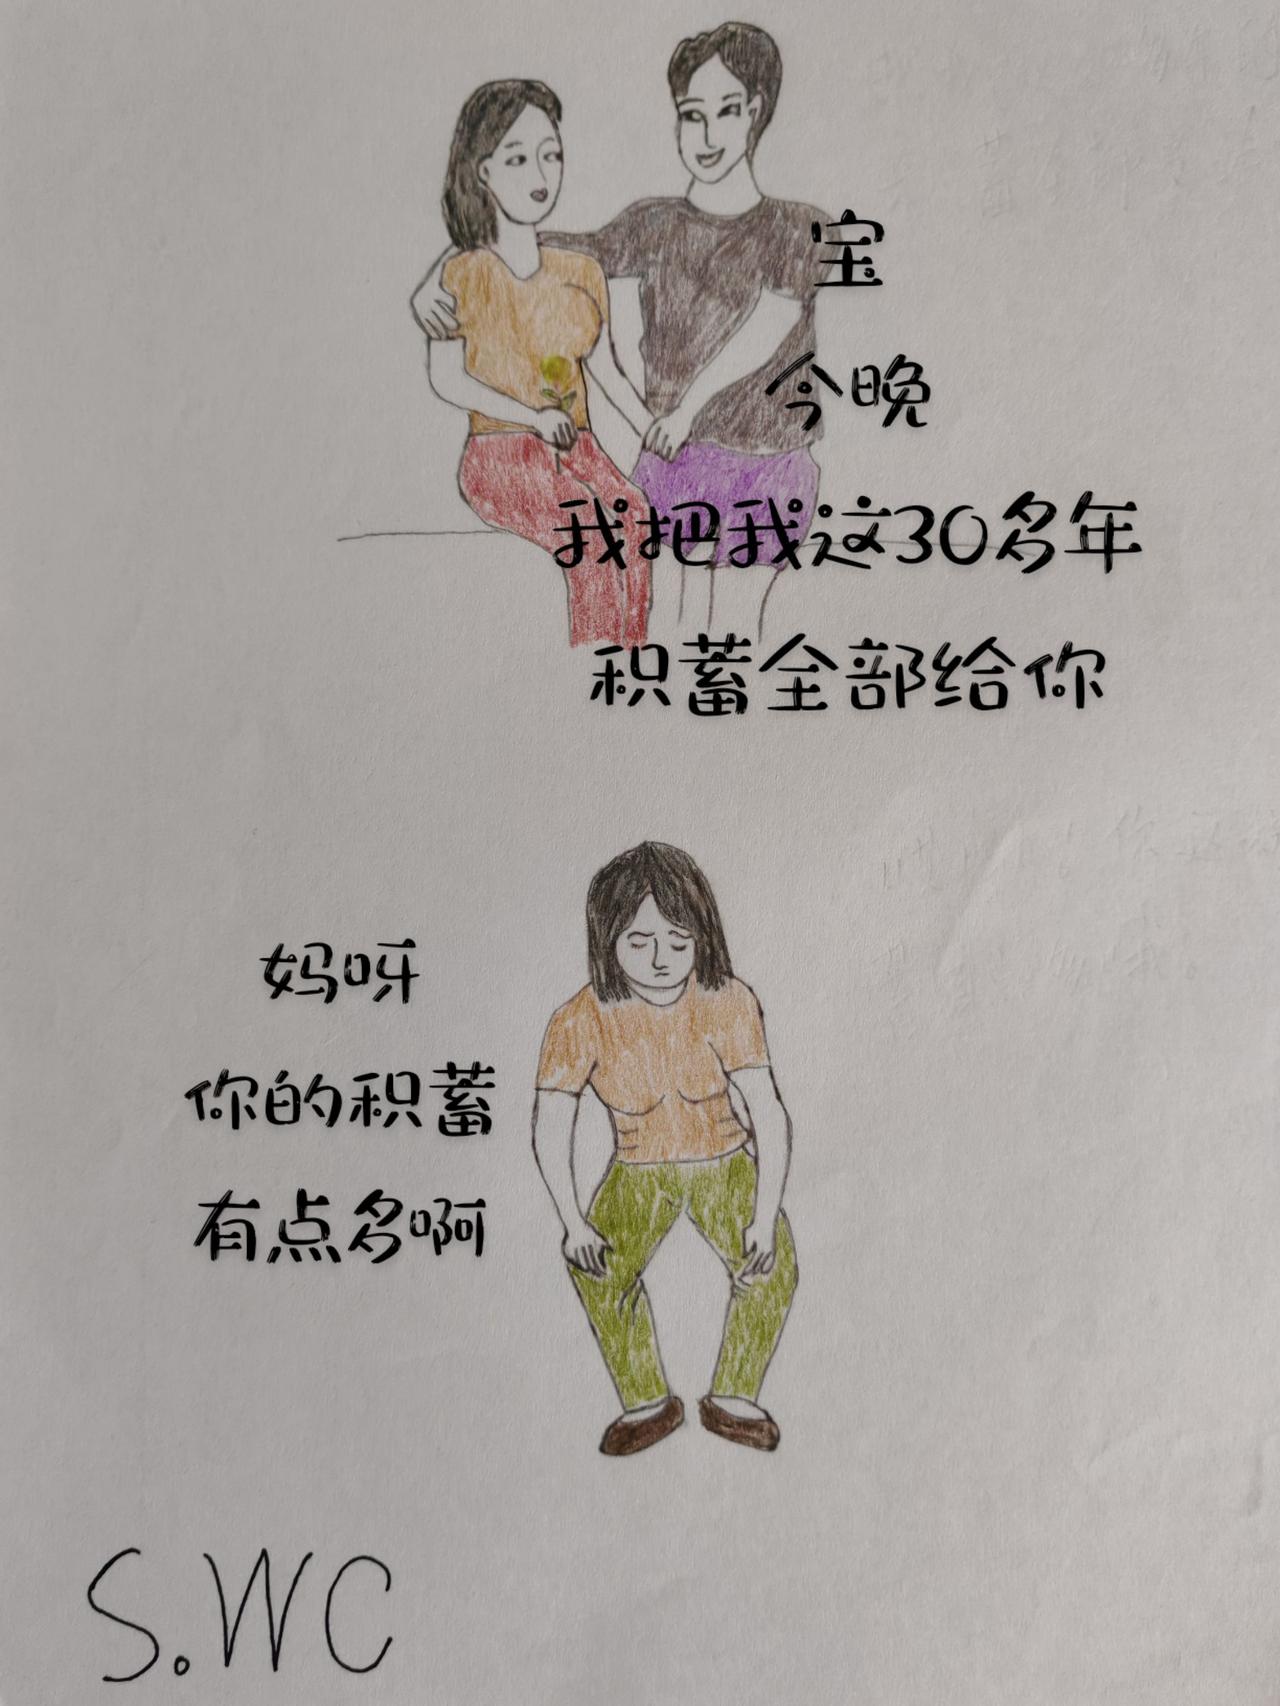 宝
今晚
我把我这30多年
积蓄全部给你
妈呀
你的积蓄
有点多啊
S.WC